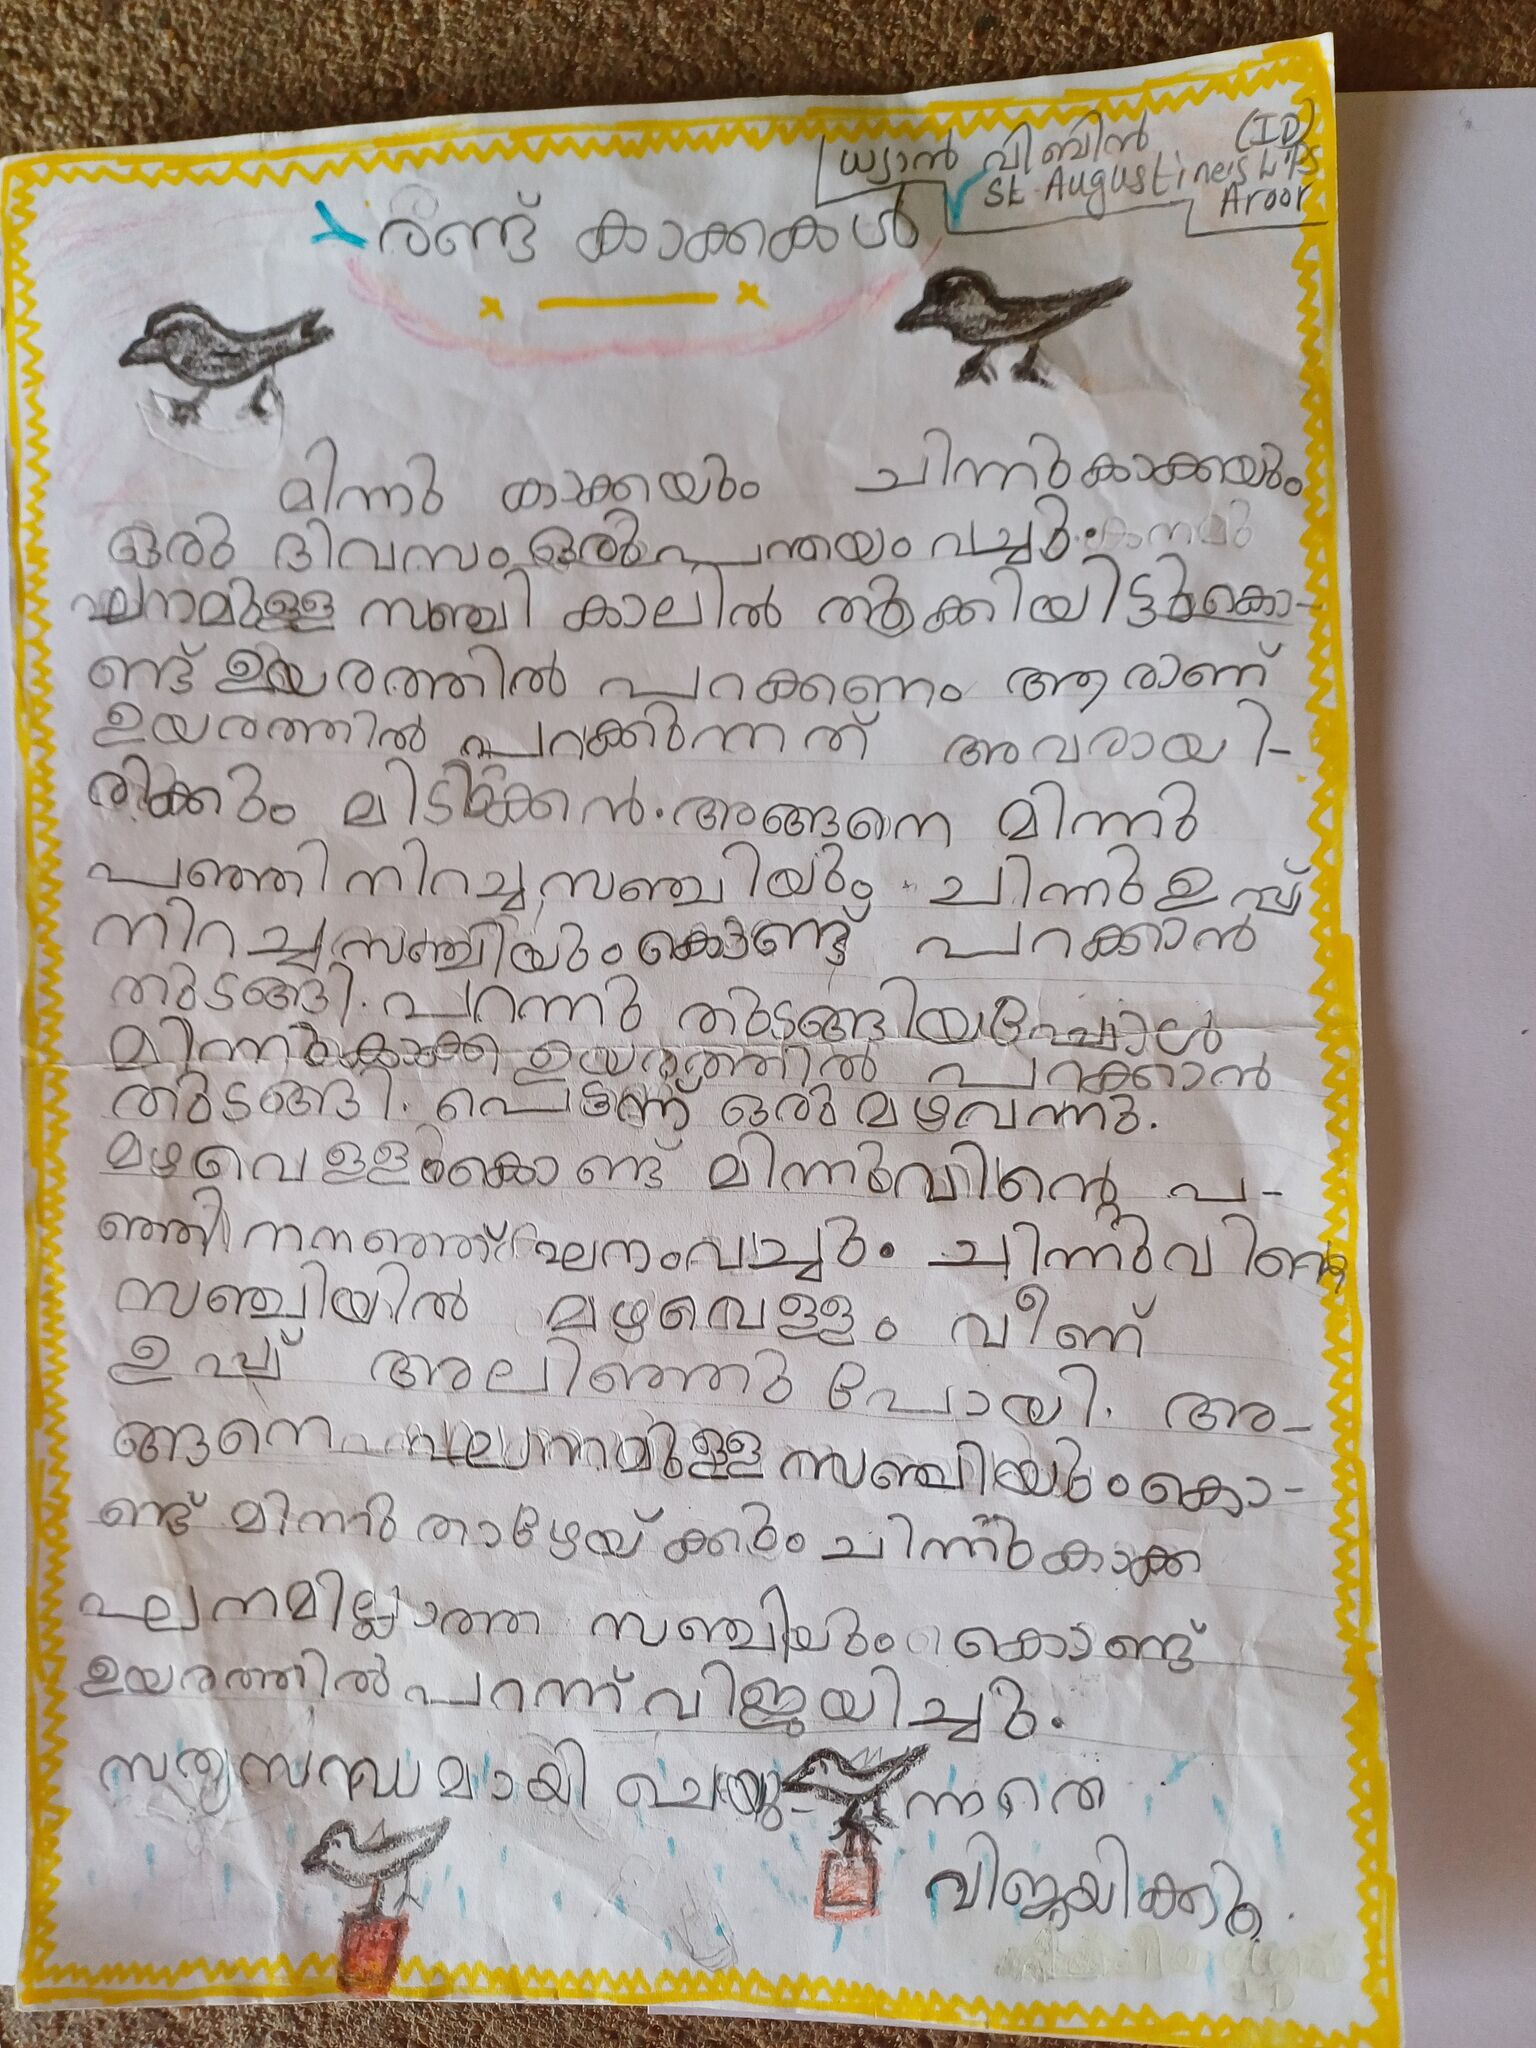 ധ്യാൻ വിബിൻ (ID)
St Augustines L.P.S
Aroor
രണ്ട് കാക്കകൾ
മിന്നു കാക്കയും ചിന്നുകാക്കയും
ഒരു ദിവസം ഒരു പന്തയം വച്ചു.
ഘനമുള്ള സഞ്ചി കാലിൽ തൂക്കിയിട്ടുകൊ-
ണ്ട് ഉയരത്തിൽ പറക്കണം ആരാണ്
ഉയരത്തിൽ പറക്കുന്നത് അവരായി-
രിക്കും മിടുക്കൻ. അങ്ങനെ മിന്നു
പഞ്ഞി നിറച്ച സഞ്ചിയും ചിന്നു ഉപ്പ്
നിറച്ച സഞ്ചിയും കൊണ്ട് പറക്കാൻ
തുടങ്ങി. പറന്നു തുടങ്ങിയപ്പോൾ
മിന്നുകാക്ക ഉയരത്തിൽ പറക്കാൻ
തുടങ്ങി. പെട്ടന്ന് ഒരു മഴവന്നു.
മഴവെള്ളംകൊണ്ട് മിന്നുവിന്റെ പ-
ഞ്ഞി നനഞ്ഞ് ഘനംവച്ചു. ചിന്നുവിന്റെ
സഞ്ചിയിൽ മഴവെള്ളം വീണ്
ഉപ്പ് അലിഞ്ഞു പോയി. അ-
ങ്ങനെ ഘനമുള്ള സഞ്ചിയുംകൊ-
ണ്ട് മിന്നു താഴേയ്ക്കും ചിന്നുകാക്ക
ഘനമില്ലാത്ത സഞ്ചിയും കൊണ്ട്
ഉയരത്തിൽ പറന്ന് വിജയിച്ചു.
സത്യസന്ധമായി ചെയ്യു- ന്നതെ
വിജയിക്കൂ.